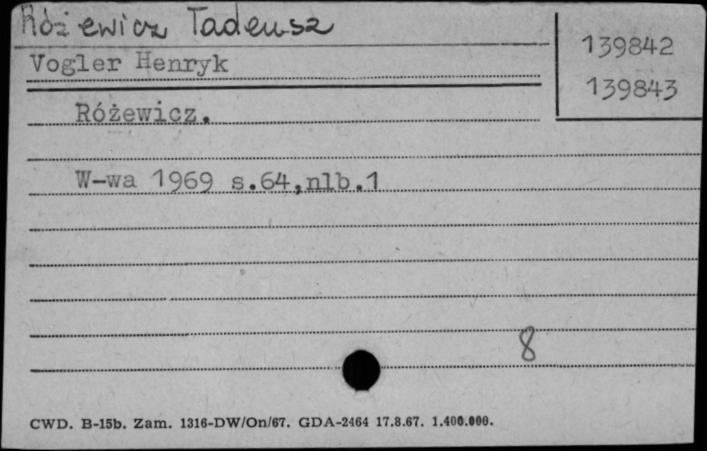 Różewicz Tadeusz
139842
Vogler Henryk
139843
Różewicz.
W-wa 1969 s.64,nlb.1
8
CWD. B-15b. Zam. 1316-DW/On/67. GDA-2464 17.8.67. 1.400.000.